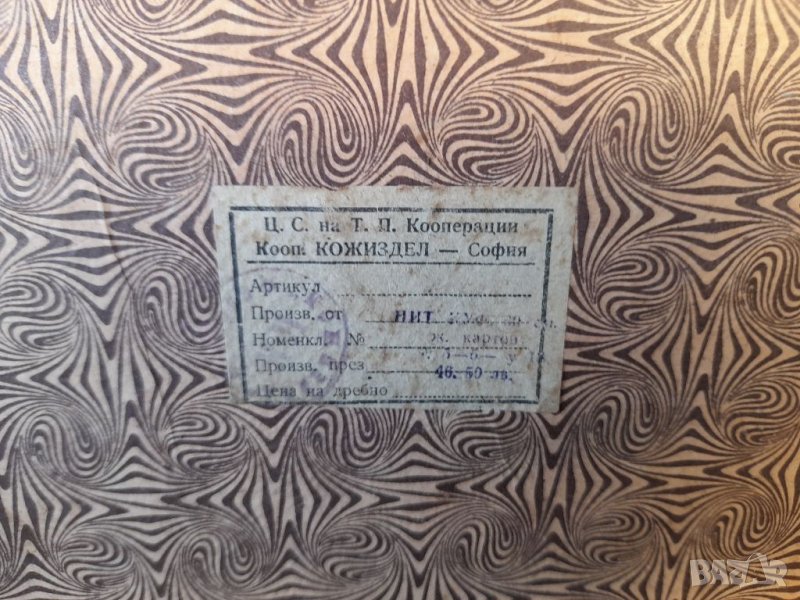 Ц. С. на Т. П. Кооперации
Кооп. КОЖИЗДЕЛ — София
Артикул
Произв. от НИТ
Номенкл. № картон
Произв. през
46.50 лв.
Цена на дребно
BAZAR